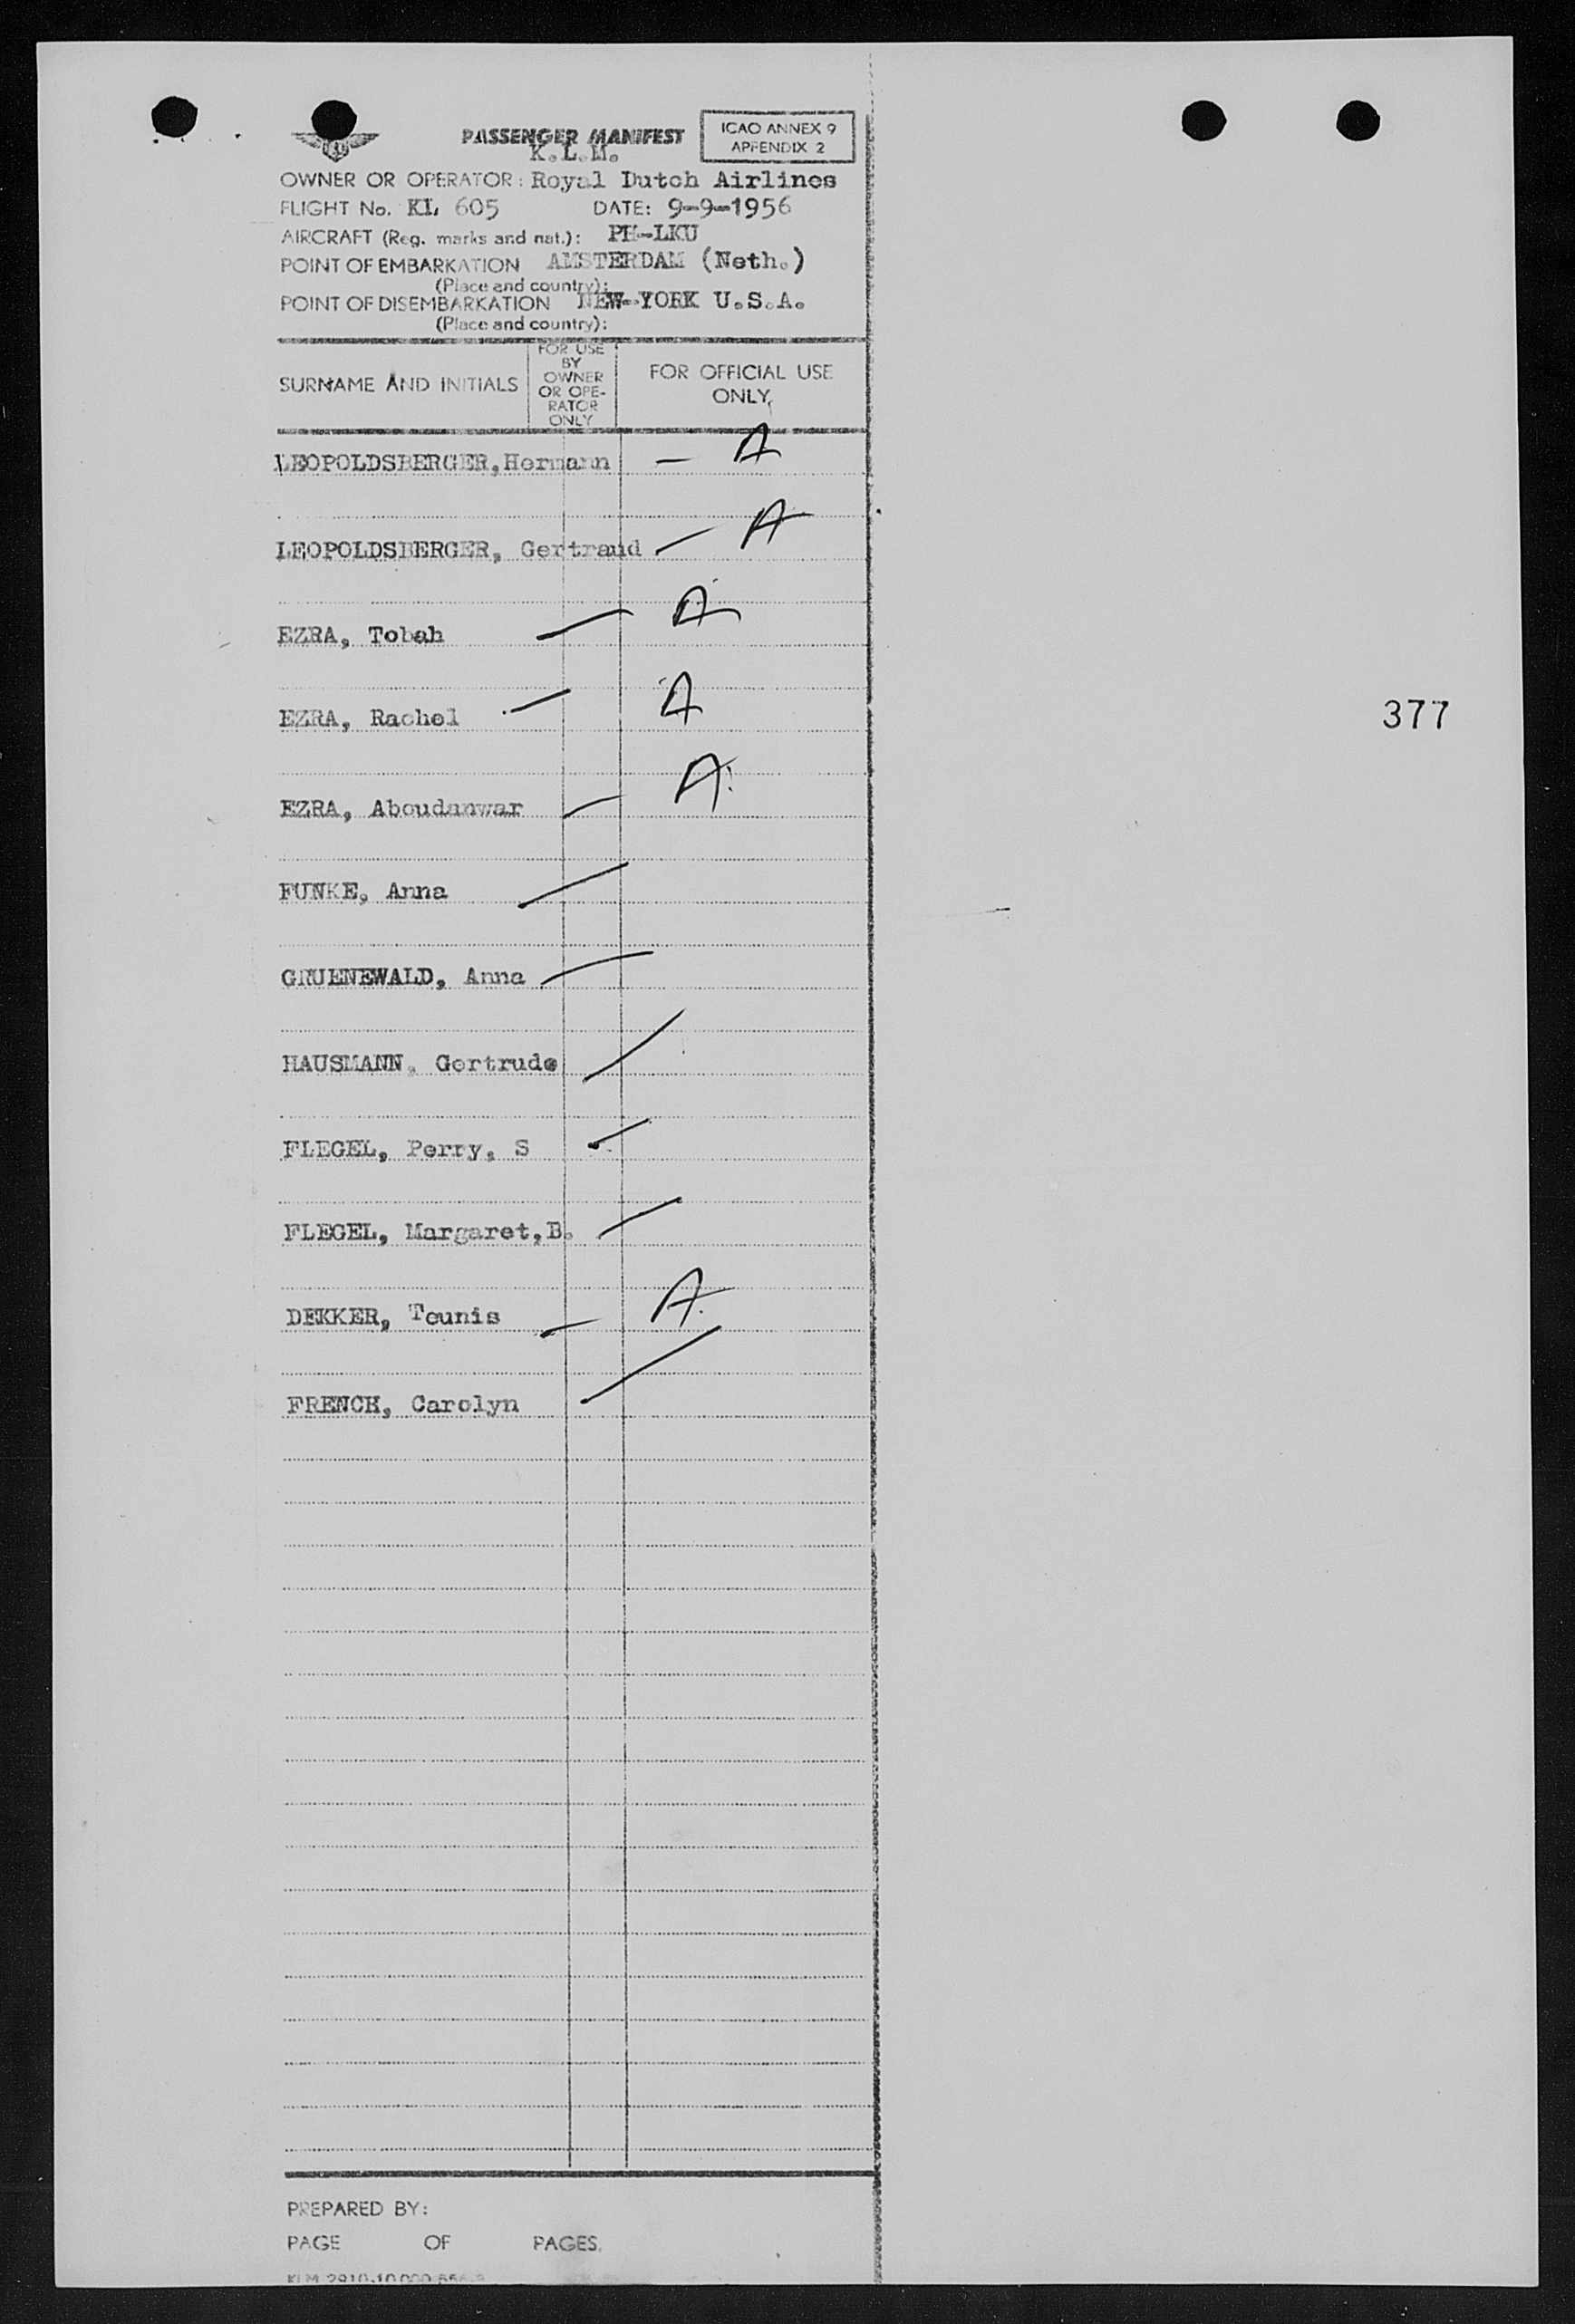 PASSENGER MANIFEST
ICAO ANNEX 9
APPENDIX 2
K.L.M.
OWNER OR OPERATOR: Royal Dutch Airlines
FLIGHT No. KL 605 DATE: 9-9-1956
AIRCRAFT (Reg. marks and nat.): PH-LKU
POINT OF EMBARKATION AMSTERDAM (Neth.)
(Place and country):
POINT OF DISEMBARKATION NEW-YORK U.S.A.
(Place and country):
SURNAME AND INITIALS
FOR USE
BY
OWNER
OR OPE-
RATOR
ONLY
FOR OFFICIAL USE
ONLY
LEOPOLDSBERGER, Hermann - A
LEOPOLDSBERGER, Gertraud A
EZRA, Tobah A
EZRA, Rachel A
377
EZRA, Aboudanwar A
FUNKE, Anna
GRUENEWALD, Anna
HAUSMANN, Gertrude
FLEGEL, Perry, S
FLEGEL, Margaret, B.
DEKKER, Teunis A
FRENCH, Carolyn
PREPARED BY:
PAGE OF PAGES.
KLM 2910-10.000